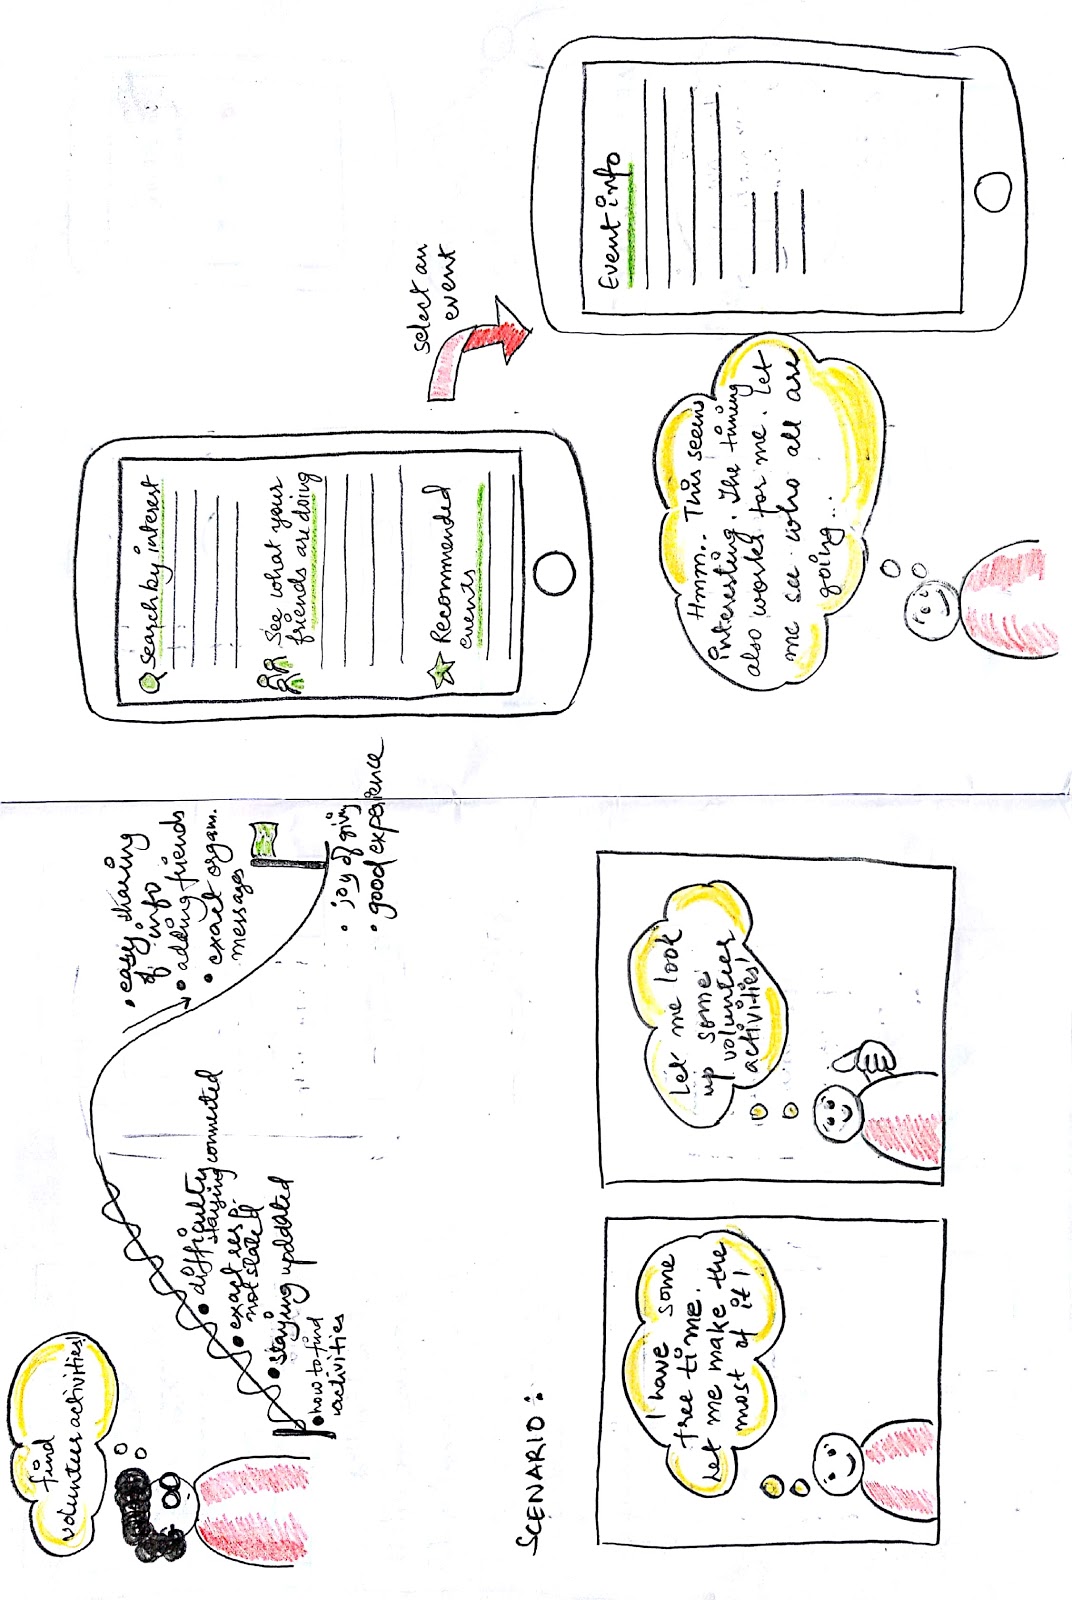 find
volunteer activities!
• how to find
activities
• staying updated
• exact resp.
not stated
• difficulty
staying connected
• easy sharing
of info
• adding friends
• exact organ.
messages
• joy of giving
• good experience
SCENARIO :
I have some
free time.
Let me make the
most of it!
Let me look
up some
volunteer
activities!
Search by interest
See what your
friends are doing
Recommended
events
select an
event
Event info
Hmm.. This seems
interesting. The timing
also works for me. Let
me see who all are
going...